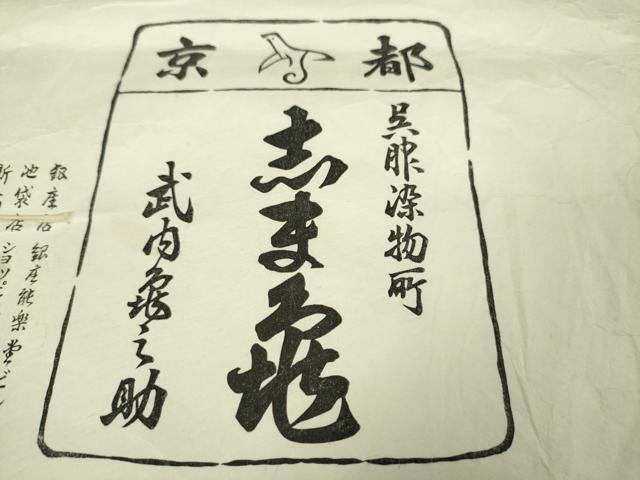 京都
呉服染物所
志ま亀
武内亀之助
銀座店 銀座能樂堂ビル
池袋店 ショッピ